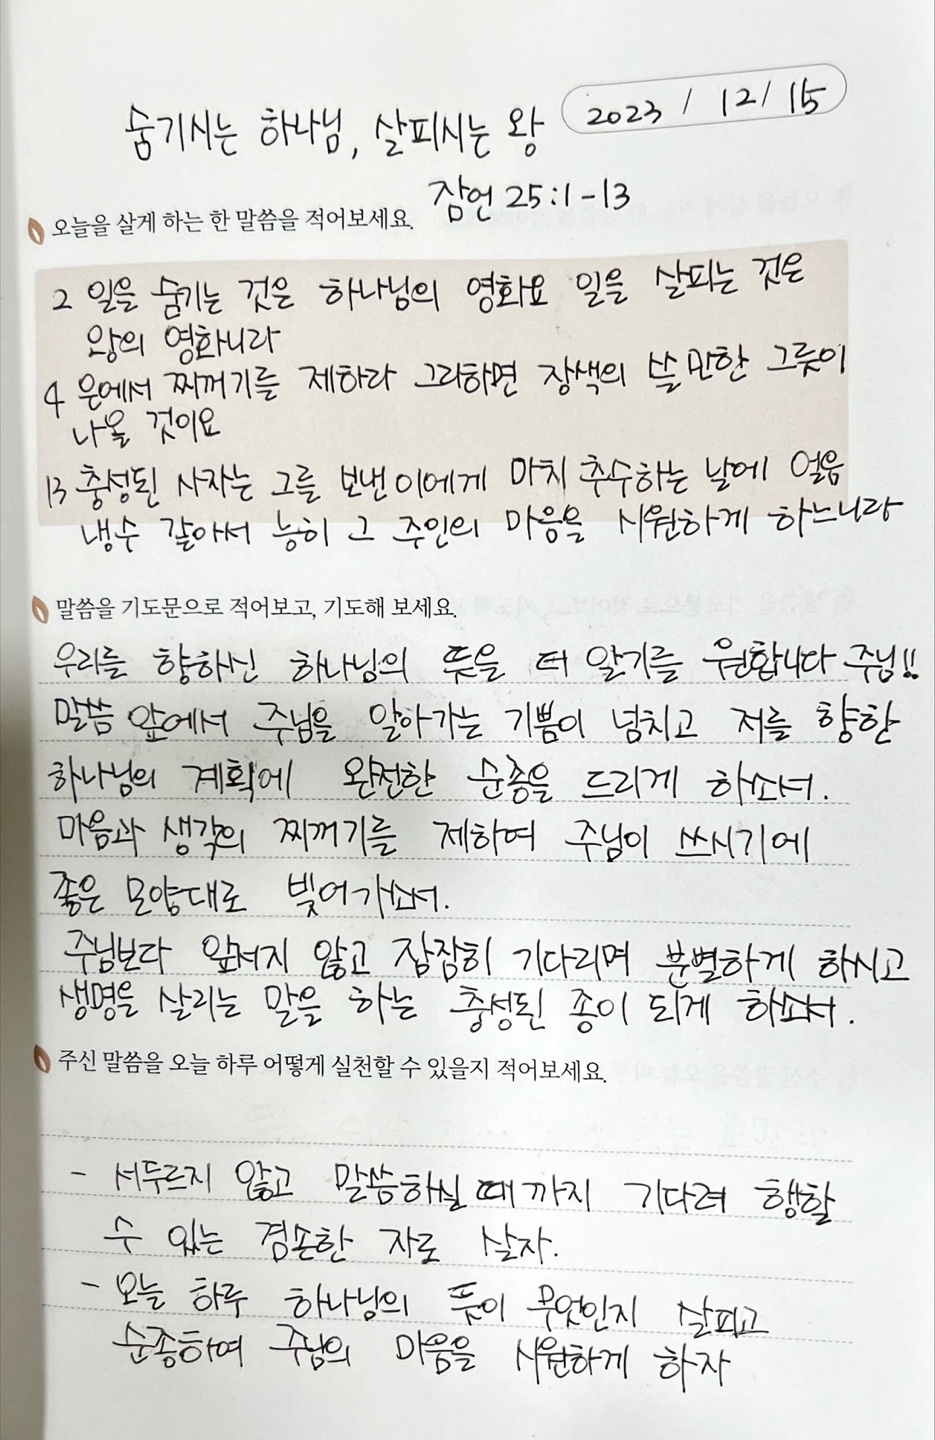 숨기시는 하나님, 살피시는 왕
2023 / 12 / 15
잠언 25:1-13
오늘을 살게 하는 한 말씀을 적어보세요.
2 일을 숨기는 것은 하나님의 영화요 일을 살피는 것은
왕의 영화니라
4 은에서 찌꺼기를 제하라 그리하면 장색의 쓸 만한 그릇이
나올 것이요
13 충성된 사자는 그를 보낸 이에게 마치 추수하는 날에 얼음
냉수 같아서 능히 그 주인의 마음을 시원하게 하느니라
말씀을 기도문으로 적어보고, 기도해 보세요.
우리를 향하신 하나님의 뜻을 더 알기를 원합니다 주님!!
말씀 앞에서 주님을 알아가는 기쁨이 넘치고 저를 향한
하나님의 계획에 완전한 순종을 드리게 하소서.
마음과 생각의 찌꺼기를 제하여 주님이 쓰시기에
좋은 모양대로 빚어가소서.
주님보다 앞서지 않고 잠잠히 기다리며 분별하게 하시고
생명을 살리는 말을 하는 충성된 종이 되게 하소서.
주신 말씀을 오늘 하루 어떻게 실천할 수 있을지 적어보세요.
- 서두르지 않고 말씀하실 때까지 기다려 행할
수 있는 겸손한 자로 살자.
- 오늘 하루 하나님의 뜻이 무엇인지 살피고
순종하여 주님의 마음을 시원하게 하자